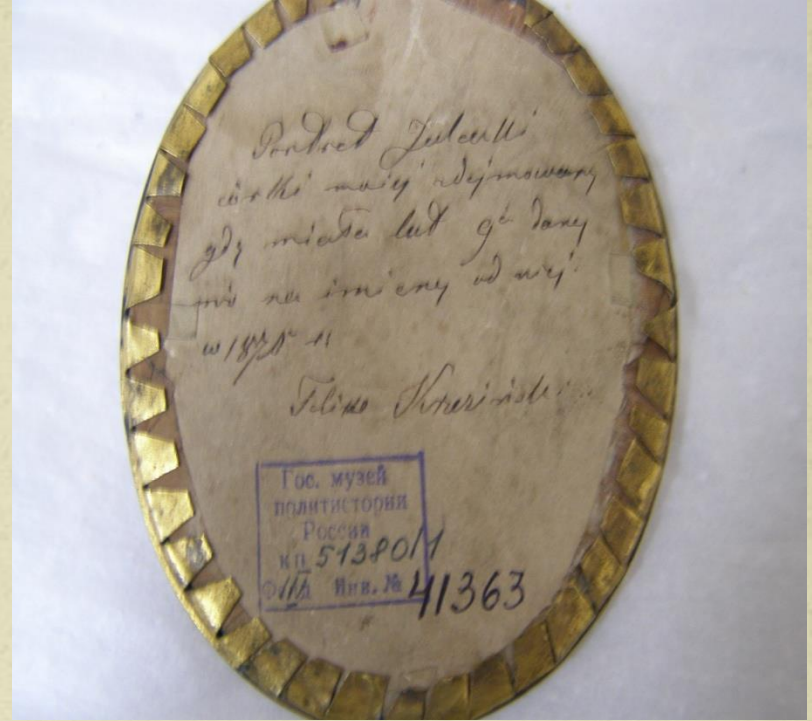 Portret
córki mojej zdejmowany
gdy miała lat 9ć dany
mi na imieny od niej
w 187
Felix Krzesiński
Гос. музей
политистории
России
кп 51380/1
Ф. Инв. № 41363